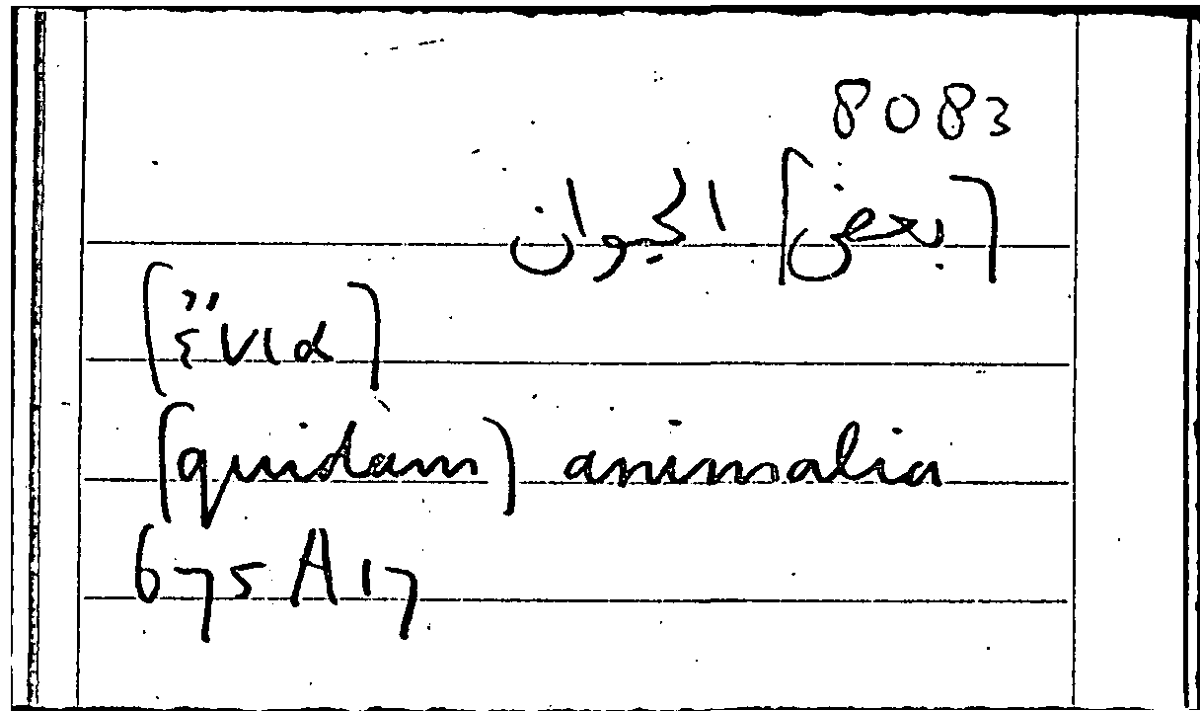 8083
[بعض] الحيوان
[ἔνια]
[quidam] animalia
675 A 17